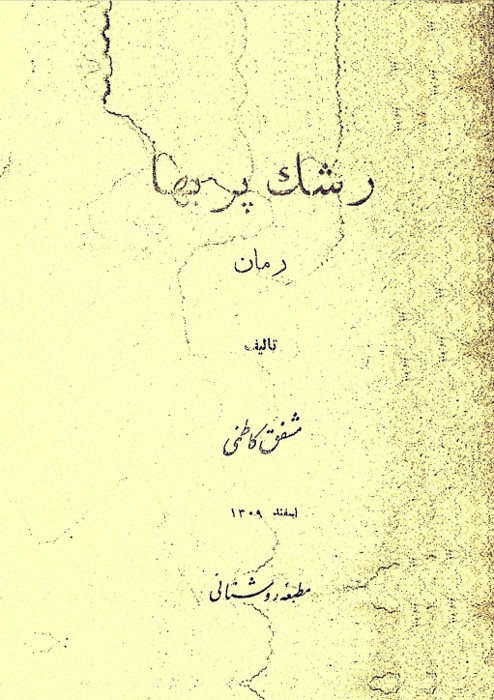 رشك پر بها
رمان
تالیف
مشفق کاظمی
اسفند ۱۳۰۹
مطبعه روشنائی